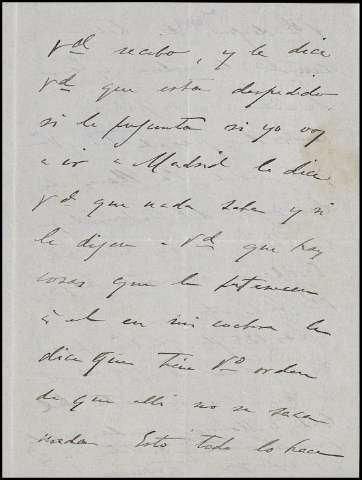 Vd recibo, y le dice
Vd que esta despedido
si le pregunta si yo voy
a ir a Madrid le dice
Vd que nada sabe y si
le dijera a Vd que hay
cosas que le pertenecen
á el en mi cochera le
dice que tiene Vd orden
de que alli no se saca
nada. Esto todo lo hace